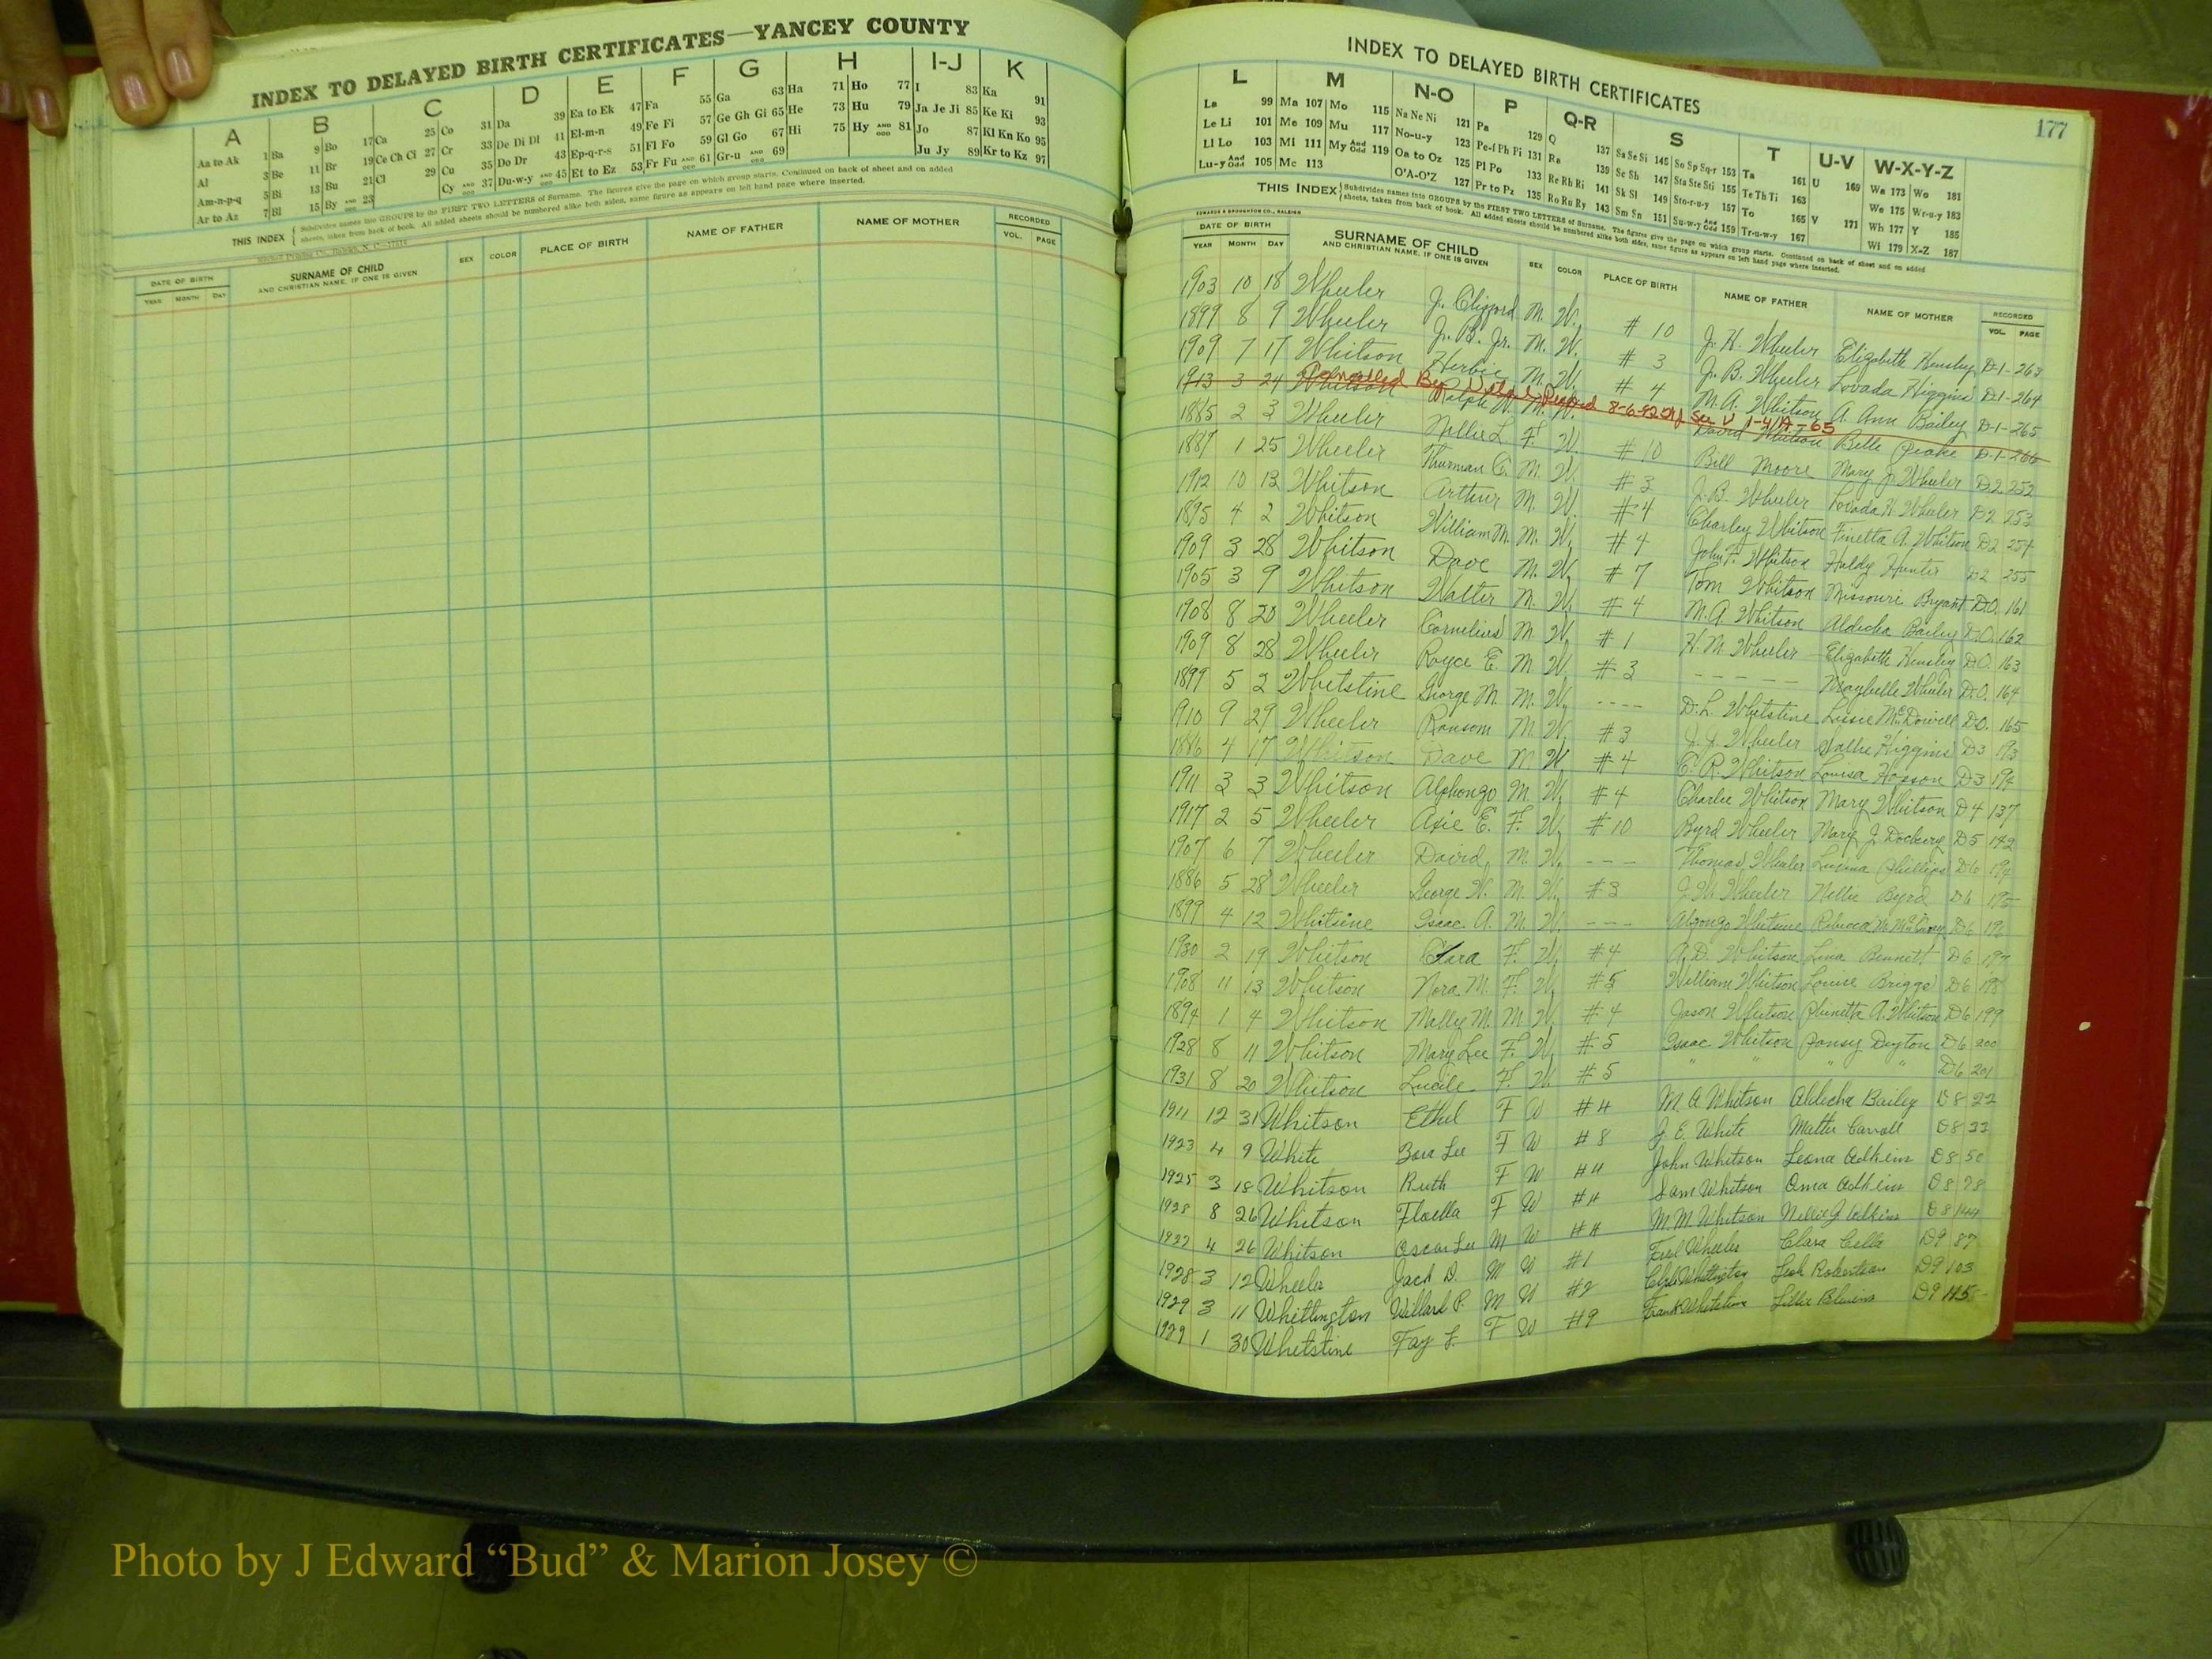 INDEX TO DELAYED BIRTH CERTIFICATES—YANCEY COUNTY
A B C D E F G H I-J K
Aa to Ak 1 Ba 9 Bo 17 Ca 25 Co 31 Da 39 Ea to Ek 47 Fa 55 Ga 63 Ha 71 Ho 77 I 83 Ka 91
Al 3 Be 11 Br 19 Ce Ch Ci 27 Cr 33 De Di Dl 41 El-m-n 49 Fe Fi 57 Ge Gh Gi 65 He 73 Hu 79 Ja Je Ji 85 Ke Ki 93
Am-n-p-q 5 Bi 13 Bu 21 Cl 29 Cu 35 Do Dr 43 Ep-q-r-s 51 Fl Fo 59 Gl Go 67 Hi 75 Hy AND ODD 81 Jo 87 Kl Kn Ko 95
Ar to Az 7 Bl 15 By AND ODD 23 Cy AND ODD 37 Du-w-y AND ODD 45 Et to Ez 53 Fr Fu AND ODD 61 Gr-u AND ODD 69 Ju Jy 89 Kr to Kz 97
THIS INDEX { Subdivides names into GROUPS by the FIRST TWO LETTERS of Surname. The figures give the page on which group starts. Continued on back of sheet and on added
sheets, taken from back of book. All added sheets should be numbered alike both sides, same figure as appears on left hand page where inserted.
DATE OF BIRTH
YEAR MONTH DAY
SURNAME OF CHILD
AND CHRISTIAN NAME, IF ONE IS GIVEN
SEX COLOR PLACE OF BIRTH NAME OF FATHER NAME OF MOTHER
RECORDED
VOL. PAGE
INDEX TO DELAYED BIRTH CERTIFICATES
177
L M N-O P Q-R S T U-V W-X-Y-Z
La 99 Ma 107 Mo 115 Na Ne Ni 121 Pa 129 Q 137 Sa Se Si 145 So Sp Sq-r 153 Ta 161 U 169 Wa 173 Wo 181
Le Li 101 Me 109 Mu 117 No-u-y 123 Pe-f Ph Pi 131 Ra 139 Sc Sh 147 Sta Ste Sti 155 Te Th Ti 163 We 175 Wr-u-y 183
Ll Lo 103 Mi 111 My And Odd 119 Oa to Oz 125 Pl Po 133 Re Rh Ri 141 Sk Sl 149 Sto-r-u-y 157 To 165 V 171 Wh 177 Y 185
Lu-y And Odd 105 Mc 113 O'A-O'Z 127 Pr to Pz 135 Ro Ru Ry 143 Sm Sn 151 Su-w-y And Odd 159 Tr-u-w-y 167 Wi 179 X-Z 187
THIS INDEX { Subdivides names into GROUPS by the FIRST TWO LETTERS of Surname. The figures give the page on which group starts. Continued on back of sheet and on added
sheets, taken from back of book. All added sheets should be numbered alike both sides, same figure as appears on left hand page where inserted.
EDWARDS & BROUGHTON CO., RALEIGH
DATE OF BIRTH
YEAR MONTH DAY
SURNAME OF CHILD
AND CHRISTIAN NAME, IF ONE IS GIVEN
SEX COLOR PLACE OF BIRTH NAME OF FATHER NAME OF MOTHER
RECORDED
VOL. PAGE
1903 10 18 Wheeler J. Clifford M. W. #10 J. H. Wheeler Elizabeth Hensley D-1-263
1899 8 9 Wheeler J. B. Jr. M. W. #3 J. B. Wheeler Lovada Higgins D-1-264
1909 7 17 Whitson Herbie M. W. #4 M. A. Whitson A. Ann Bailey D-1-265
1913 3 24 Whitson Ralph W. M. W. David Whitson Belle Peake D-1-266
Cancelled By 8-6-82 See V 1-41A-65
1885 2 3 Wheeler Nellie L F. W. #10 Bill Moore Mary J. Wheeler D2 252
1887 1 25 Wheeler Thurman C. M. W. #3 J. B. Wheeler Lovada H. Wheeler D2 253
1912 10 13 Whitson Arthur M. W. #4 Charley Whitson Finetta A. Whitson D2 254
1895 4 2 Whitson William M. M. W. #4 John F. Whitson Huldy Hunter D2 255
1909 3 28 Whitson Dave M. W. #7 Tom Whitson Missouri Bryant D.O. 161
1905 3 9 Whitson Walter M. W. #4 M. A. Whitson Aldecha Bailey D.O. 162
1908 8 20 Wheeler Cornelius M. W. #1 H. M. Wheeler Elizabeth Hensley D.O. 163
1909 8 28 Wheeler Royce E. M W. #3 - - - - - Maybelle Wheeler D.O. 164
1899 5 2 Whetstine George M. M. W. ---- D. L. Whitstine Lusie McDowell D.O. 165
1910 9 29 Wheeler Ransom M. W. #3 J. J. Wheeler Sallie Higgins D3 193
1886 4 17 Whitson Dave M W #4 C. R. Whitson Louisa D3 194
1911 3 3 Whitson Alphonzo M. W. #4 Charlie Whitson Mary Whitson D4 137
1917 2 5 Wheeler Axie E. F. W. #10 Byrd Wheeler Mary J. Dockery D5 142
1907 6 7 Wheeler David M. W. --- Thomas Wheeler Lucina Phillips D6 194
1886 5 28 Wheeler George W. M. W. #3 J. W. Wheeler Nellie Byrd D6 195
1899 4 12 Whitsine Isaac A. M. W. --- Alzongo Whitsine Rebecca D6 196
1930 2 19 Whitson Clara F. W. #4 A. D. Whitson Lina Bennett D6 197
1908 11 13 Whitson Nora M. F. W. #5 William Whitson Louise Briggs D6 198
1894 1 4 Whitson Molly M. M W. #4 Jason Whitson Phinetta A. Whitson D6 199
1928 8 11 Whitson Mary Lee F. W. #5 Isaac Whitson Pansy Deyton D6 200
1931 8 20 Whitson Lucile F. W. #5 " " " " D6 201
1911 12 31 Whitson Ethel F W #4 M. A Whitson Aldecha Bailey D8 22
1923 4 9 White Zora Lee F W #8 J. E. White Mattie Carroll D8 33
1925 3 18 Whitson Ruth F W #4 John Whitson Leona Adkins D8 50
1928 8 26 Whitson Floella F W #4 Sam Whitson Oma Adkins D8 78
1922 4 26 Whitson Oscar Lee M W #4 M. M Whitson Nellie J D8 144
1928 3 12 Wheeler Jack D. M W #1 Fred Wheeler Clara D9 87
1929 3 11 Whittington Willard P. M W #2 Clyde Whittington Leah Robertson D9 103
1929 1 30 Whetstine Fay L. F W #9 Frank Whetstine Lillie Blevins D9 115
Photo by J Edward “Bud” & Marion Josey ©